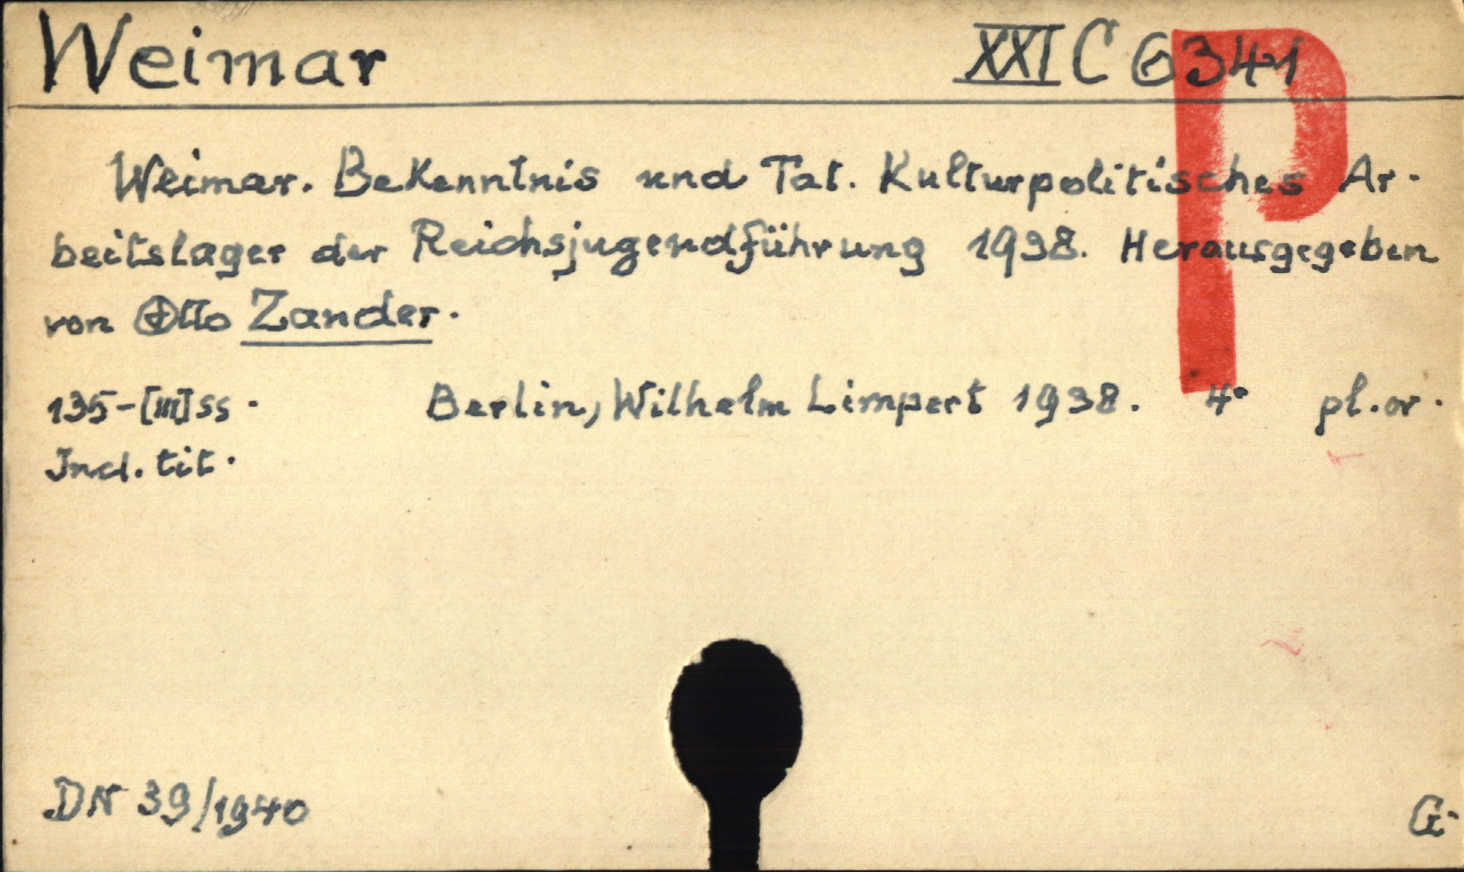 Weimar XXI C 6341
P
Weimar. Bekenntnis und Tat. Kulturpolitisches Ar-
beitslager der Reichsjugendführung 1938. Herausgegeben
von Otto Zander.
135-[III]ss. Berlin, Wilhelm Limpert 1938. 4° pl. or.
Incl. tit.
DN 39/1940 G.